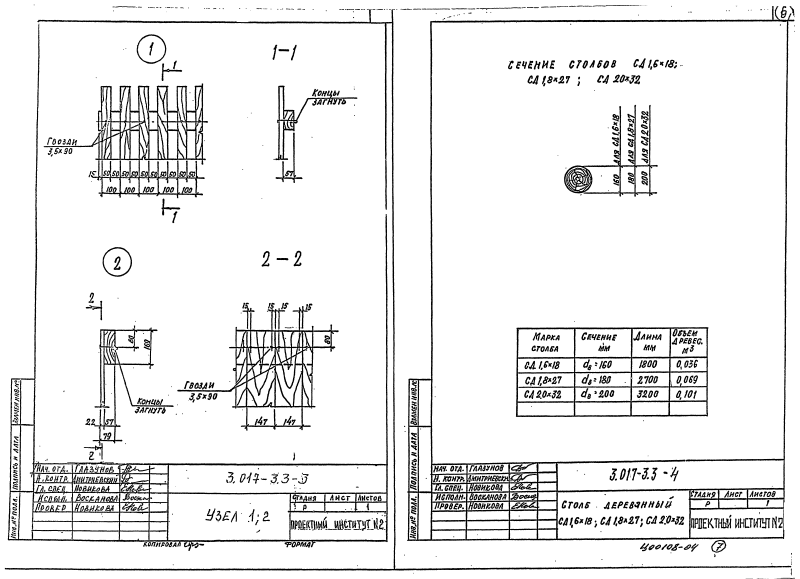 6
1
1-1
1
КОНЦЫ
ЗАГНУТЬ
ГВОЗДИ
3,5×90
15 50 50 50 50 50 50 50 50 50 50
100 100 100 100 100
57
1
2
2-2
2
15 15 15 15
80
100
80
КОНЦЫ
ЗАГНУТЬ
ГВОЗДИ
3,5×90
22 57
79
147 147
2
ВЗАМЕН ИНВ.№
ПОДПИСЬ И ДАТА
ИНВ.№ ПОДЛ.
НАЧ. ОТД. ГЛАЗУНОВ
Н.КОНТР. ДМИТРИЕВСКИЙ
ГЛ. СПЕЦ. НОВИКОВА
ИСПОЛН. ВОСКАНОВА
ПРОВЕР. НОВИКОВА
3.017-3.3-3
УЗЕЛ 1; 2
СТАДИЯ ЛИСТ ЛИСТОВ
Р 1
ПРОЕКТНЫЙ ИНСТИТУТ №2
КОПИРОВАЛ
ФОРМАТ
СЕЧЕНИЕ СТОЛБОВ СД 1,6×18;
СД 1,8×27; СД 2.0×32
160 ДЛЯ СД 1,6×18
180 ДЛЯ СД 1,8×27
200 ДЛЯ СД 2.0×32
МАРКА СТОЛБА СЕЧЕНИЕ мм ДЛИНА мм ОБЪЕМ ДРЕВЕС. м3
СД 1,6×18 dв=160 1800 0,036
СД 1,8×27 dв=180 2700 0,069
СД 2.0×32 dв=200 3200 0,101
ВЗАМЕН ИНВ.№
ПОДПИСЬ И ДАТА
ИНВ.№ ПОДЛ.
НАЧ. ОТД. ГЛАЗУНОВ
Н. КОНТР. ДМИТРИЕВСКИЙ
ГЛ. СПЕЦ. НОВИКОВА
ИСПОЛН. ВОСКАНОВА
ПРОВЕР. НОВИКОВА
3.017-3.3-4
СТОЛБ ДЕРЕВЯННЫЙ
СД 1,6×18; СД 1,8×27; СД 2.0×32
СТАДИЯ ЛИСТ ЛИСТОВ
Р 1
ПРОЕКТНЫЙ ИНСТИТУТ №2
Ц00108-04 7